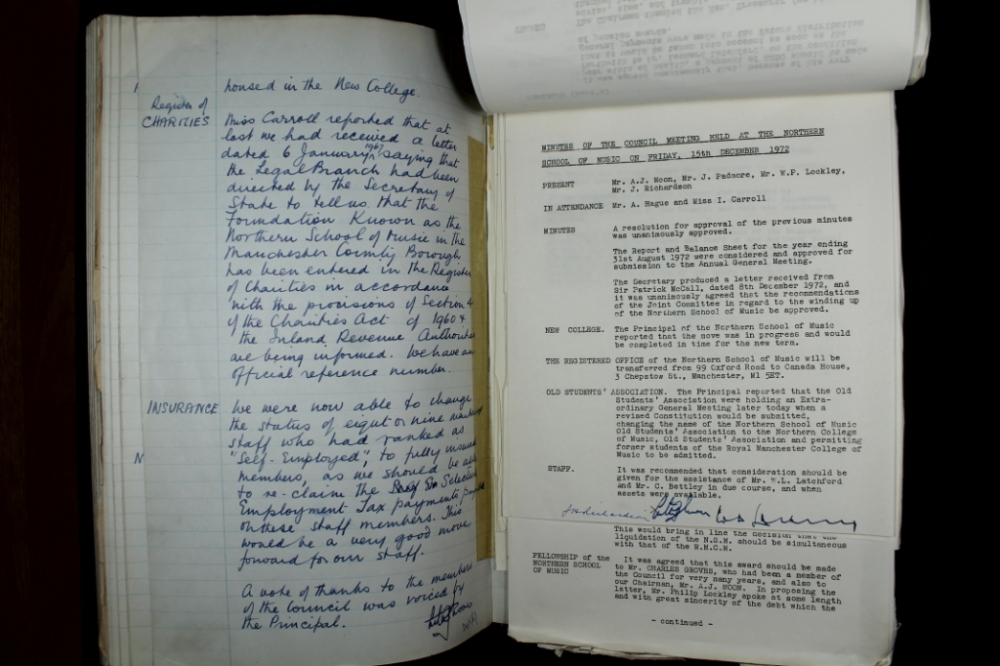 housed in the New College.
Register of
CHARITIES
Miss Carroll reported that at
last we had received a letter
dated 6 January 1967 saying that
the Legal Branch had been
directed by the Secretary of
State to tell us that the
Foundation Known as the
Northern School of Music in the
Manchester County Borough
has been entered in the Register
of Charities in accordance
with the provisions of Section 4
of the Charities Act of 1960 &
the Inland Revenue Authorities
are being informed. We have an
official reference number.
INSURANCE
We were now able to change
the status of eight or nine
staff who had ranked as
"Self-Employed", to fully insured
members, as we should be able
to re-claim the Selective
Employment Tax payments
on these staff members. This
would be a very good move
forward for our staff.
A vote of thanks to the members
of the Council was voiced by
the Principal.
MINUTES OF THE COUNCIL MEETING HELD AT THE NORTHERN
SCHOOL OF MUSIC ON FRIDAY, 15th DECEMBER 1972
PRESENT Mr. A.J. Moon, Mr. J. Padmore, Mr. W.P. Lockley,
Mr. J. Richardson
IN ATTENDANCE Mr. A. Hague and Miss I. Carroll
MINUTES A resolution for approval of the previous minutes
was unanimously approved.
The Report and Balance Sheet for the year ending
31st August 1972 were considered and approved for
submission to the Annual General Meeting.
The Secretary produced a letter received from
Sir Patrick McCall, dated 8th December 1972, and
it was unanimously agreed that the recommendations
of the Joint Committee in regard to the winding up
of the Northern School of Music be approved.
NEW COLLEGE. The Principal of the Northern School of Music
reported that the move was in progress and would
be completed in time for the new term.
THE REGISTERED OFFICE of the Northern School of Music will be
transferred from 99 Oxford Road to Canada House,
3 Chepstow St., Manchester, M1 5ET.
OLD STUDENTS' ASSOCIATION. The Principal reported that the Old
Students' Association were holding an Extra-
ordinary General Meeting later today when a
revised Constitution would be submitted,
changing the name of the Northern School of Music
Old Students' Association to the Northern College
of Music, Old Students' Association and permitting
former students of the Royal Manchester College of
Music to be admitted.
STAFF. It was recommended that consideration should be
given for the assistance of Mr. W.L. Latchford
and Mr. C. Bettley in due course, and when
assets were available.
This would bring in line the decision that the
liquidation of the N.S.M. should be simultaneous
with that of the R.M.C.M.
FELLOWSHIP of the
NORTHERN SCHOOL
OF MUSIC
It was agreed that this award should be made
to Mr. CHARLES GROVES, who had been a member of
the Council for very many years, and also to
our Chairman, Mr. A.J. MOON. In proposing the
latter, Mr. Philip Lockley spoke at some length
and with great sincerity of the debt which the
- continued -